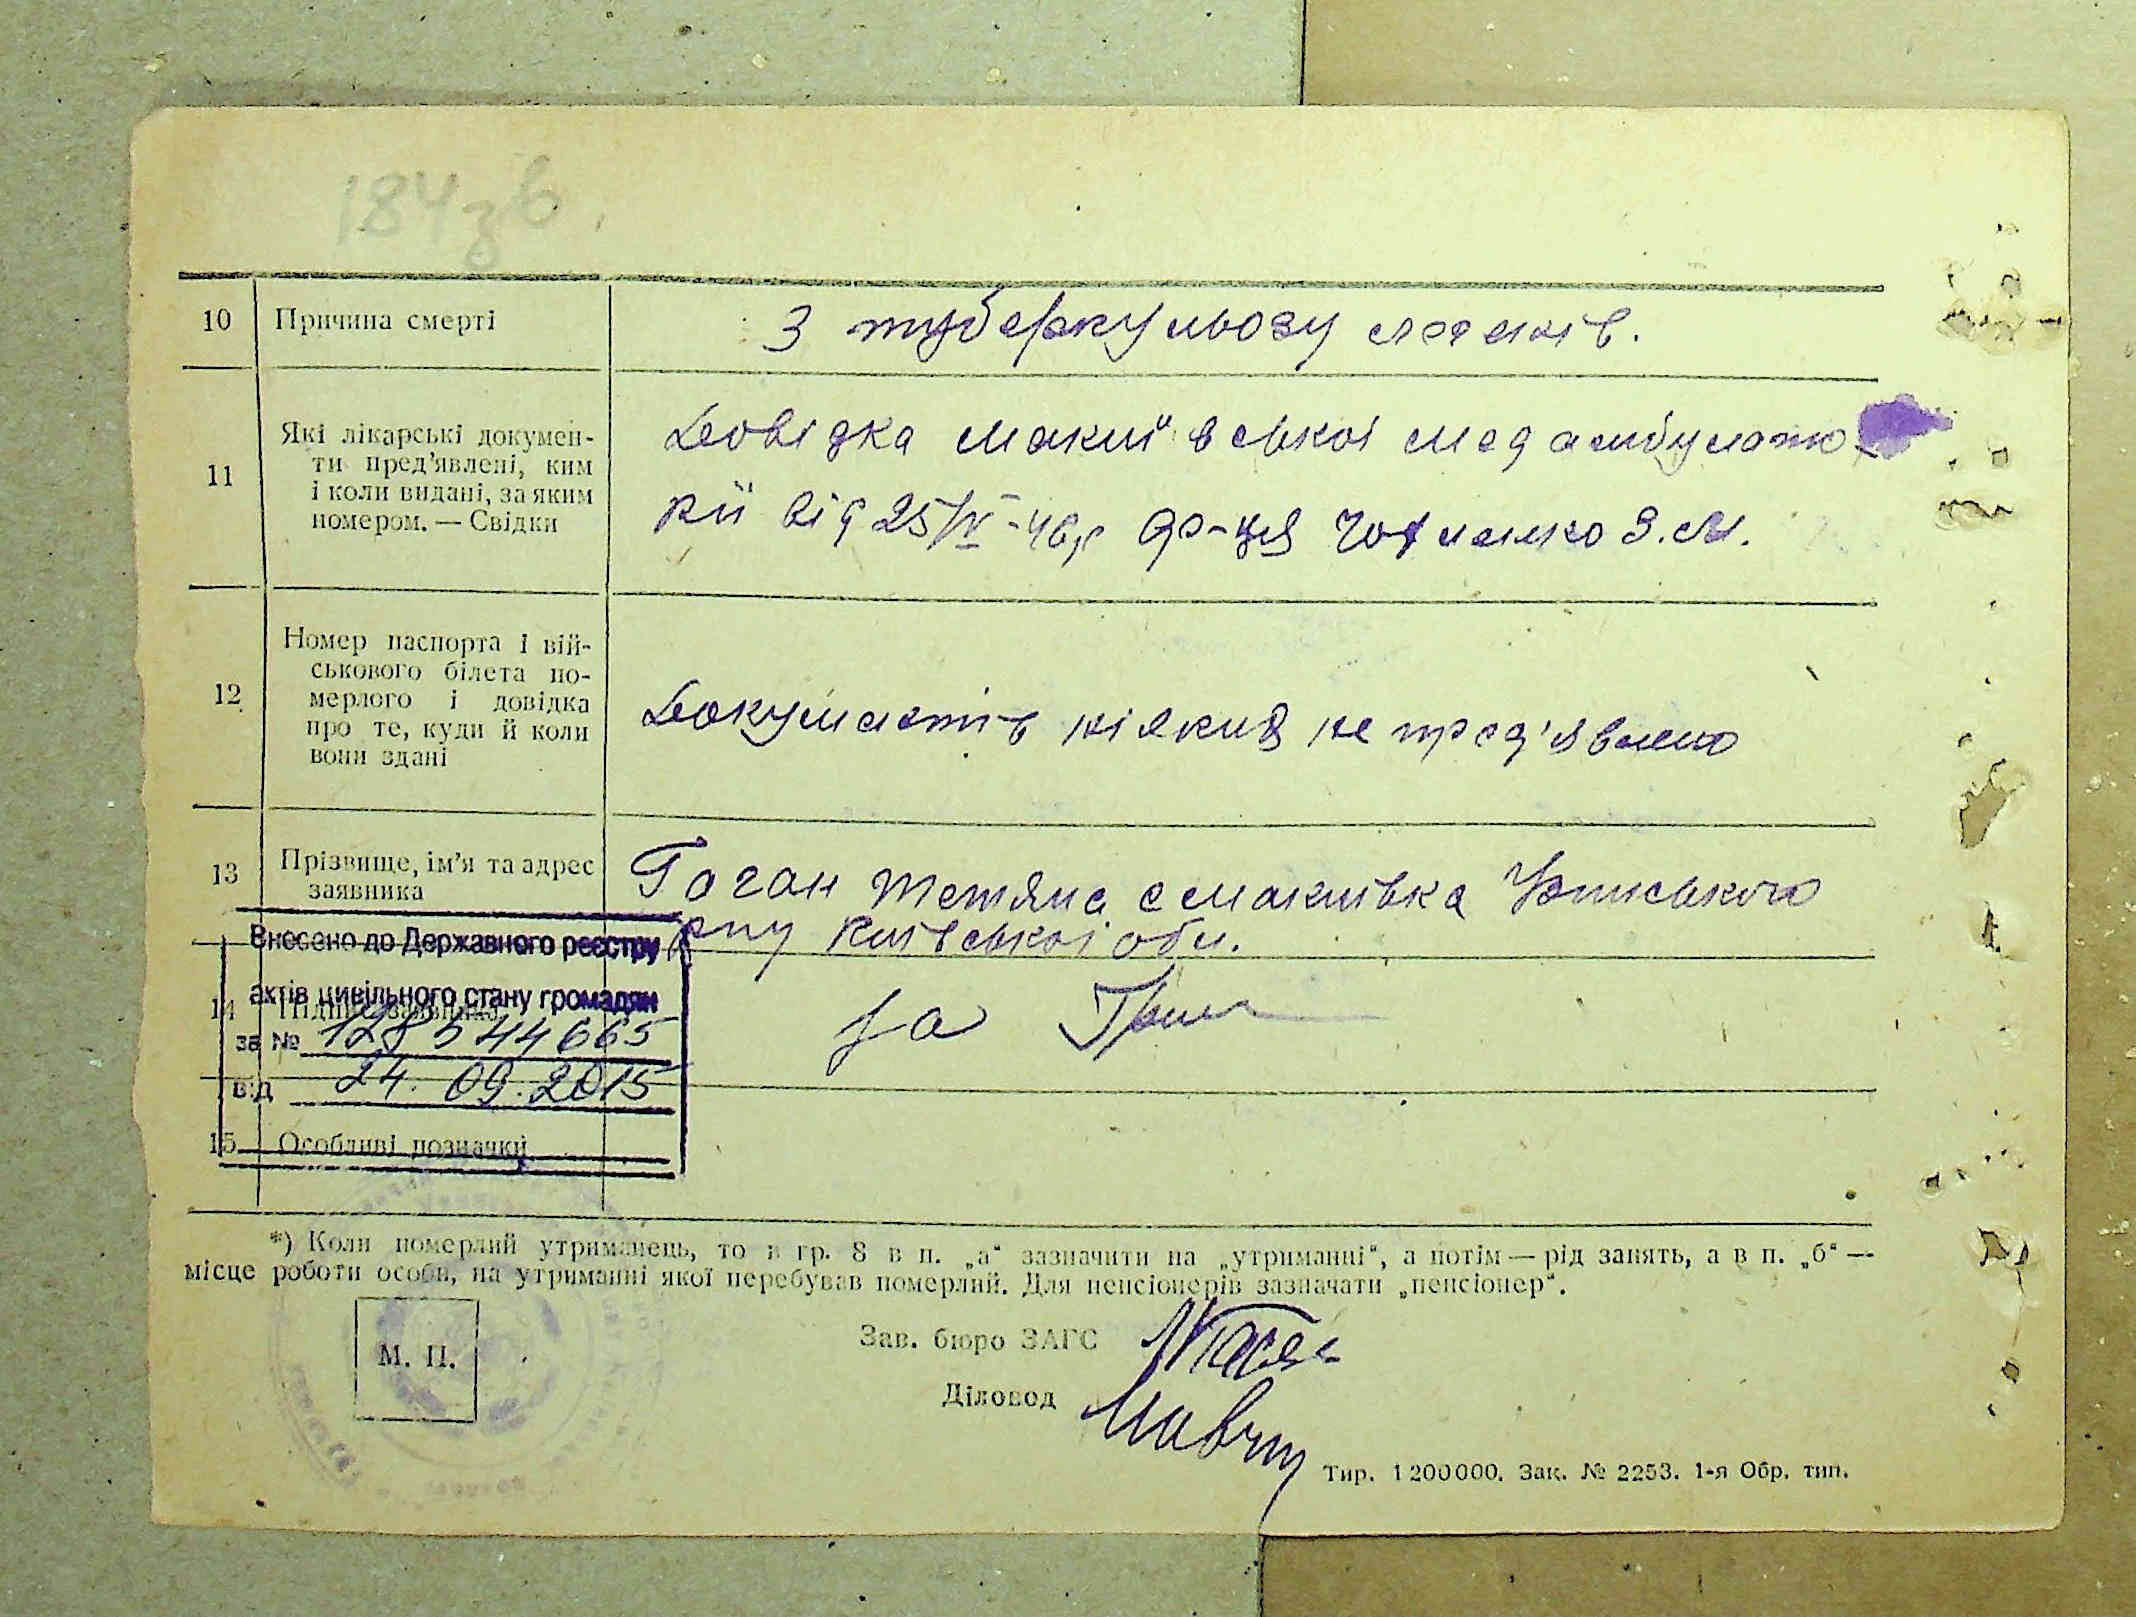 184зв
10 Причина смерті
З туберкульозу легенів.
11 Які лікарські докумен-
ти пред’явлені, ким
і коли видані, за яким
номером. — Свідки
Довідка Макиївської медамбулато
рії від 25/IV-46р
З.М.
12 Номер паспорта і вій-
ськового білета по-
мерлого і довідка
про те, куди й коли
вони здані
Документів ніяких не пред'явлено
13 Прізвище, ім’я та адрес
заявника
Гаган Тетяна с Макиївка
р-ну Київської обл.
14 Підпис заявника
за
Внесено до Державного реєстру
актів цивільного стану громадян
за № 128544665
від 24.09.2015
15 Особливі позначки
*) Коли померлий утриманець, то в гр. 8 в п. „а“ зазначити на „утриманні“, а потім — рід занять, а в п. „б“ —
місце роботи особи, на утриманні якої перебував померлий. Для пенсіонерів зазначати „пенсіонер“.
М. П.
Зав. бюро ЗАГС
Діловод
Тир. 1 200 000. Зак. № 2253. 1-я Обр. тип.